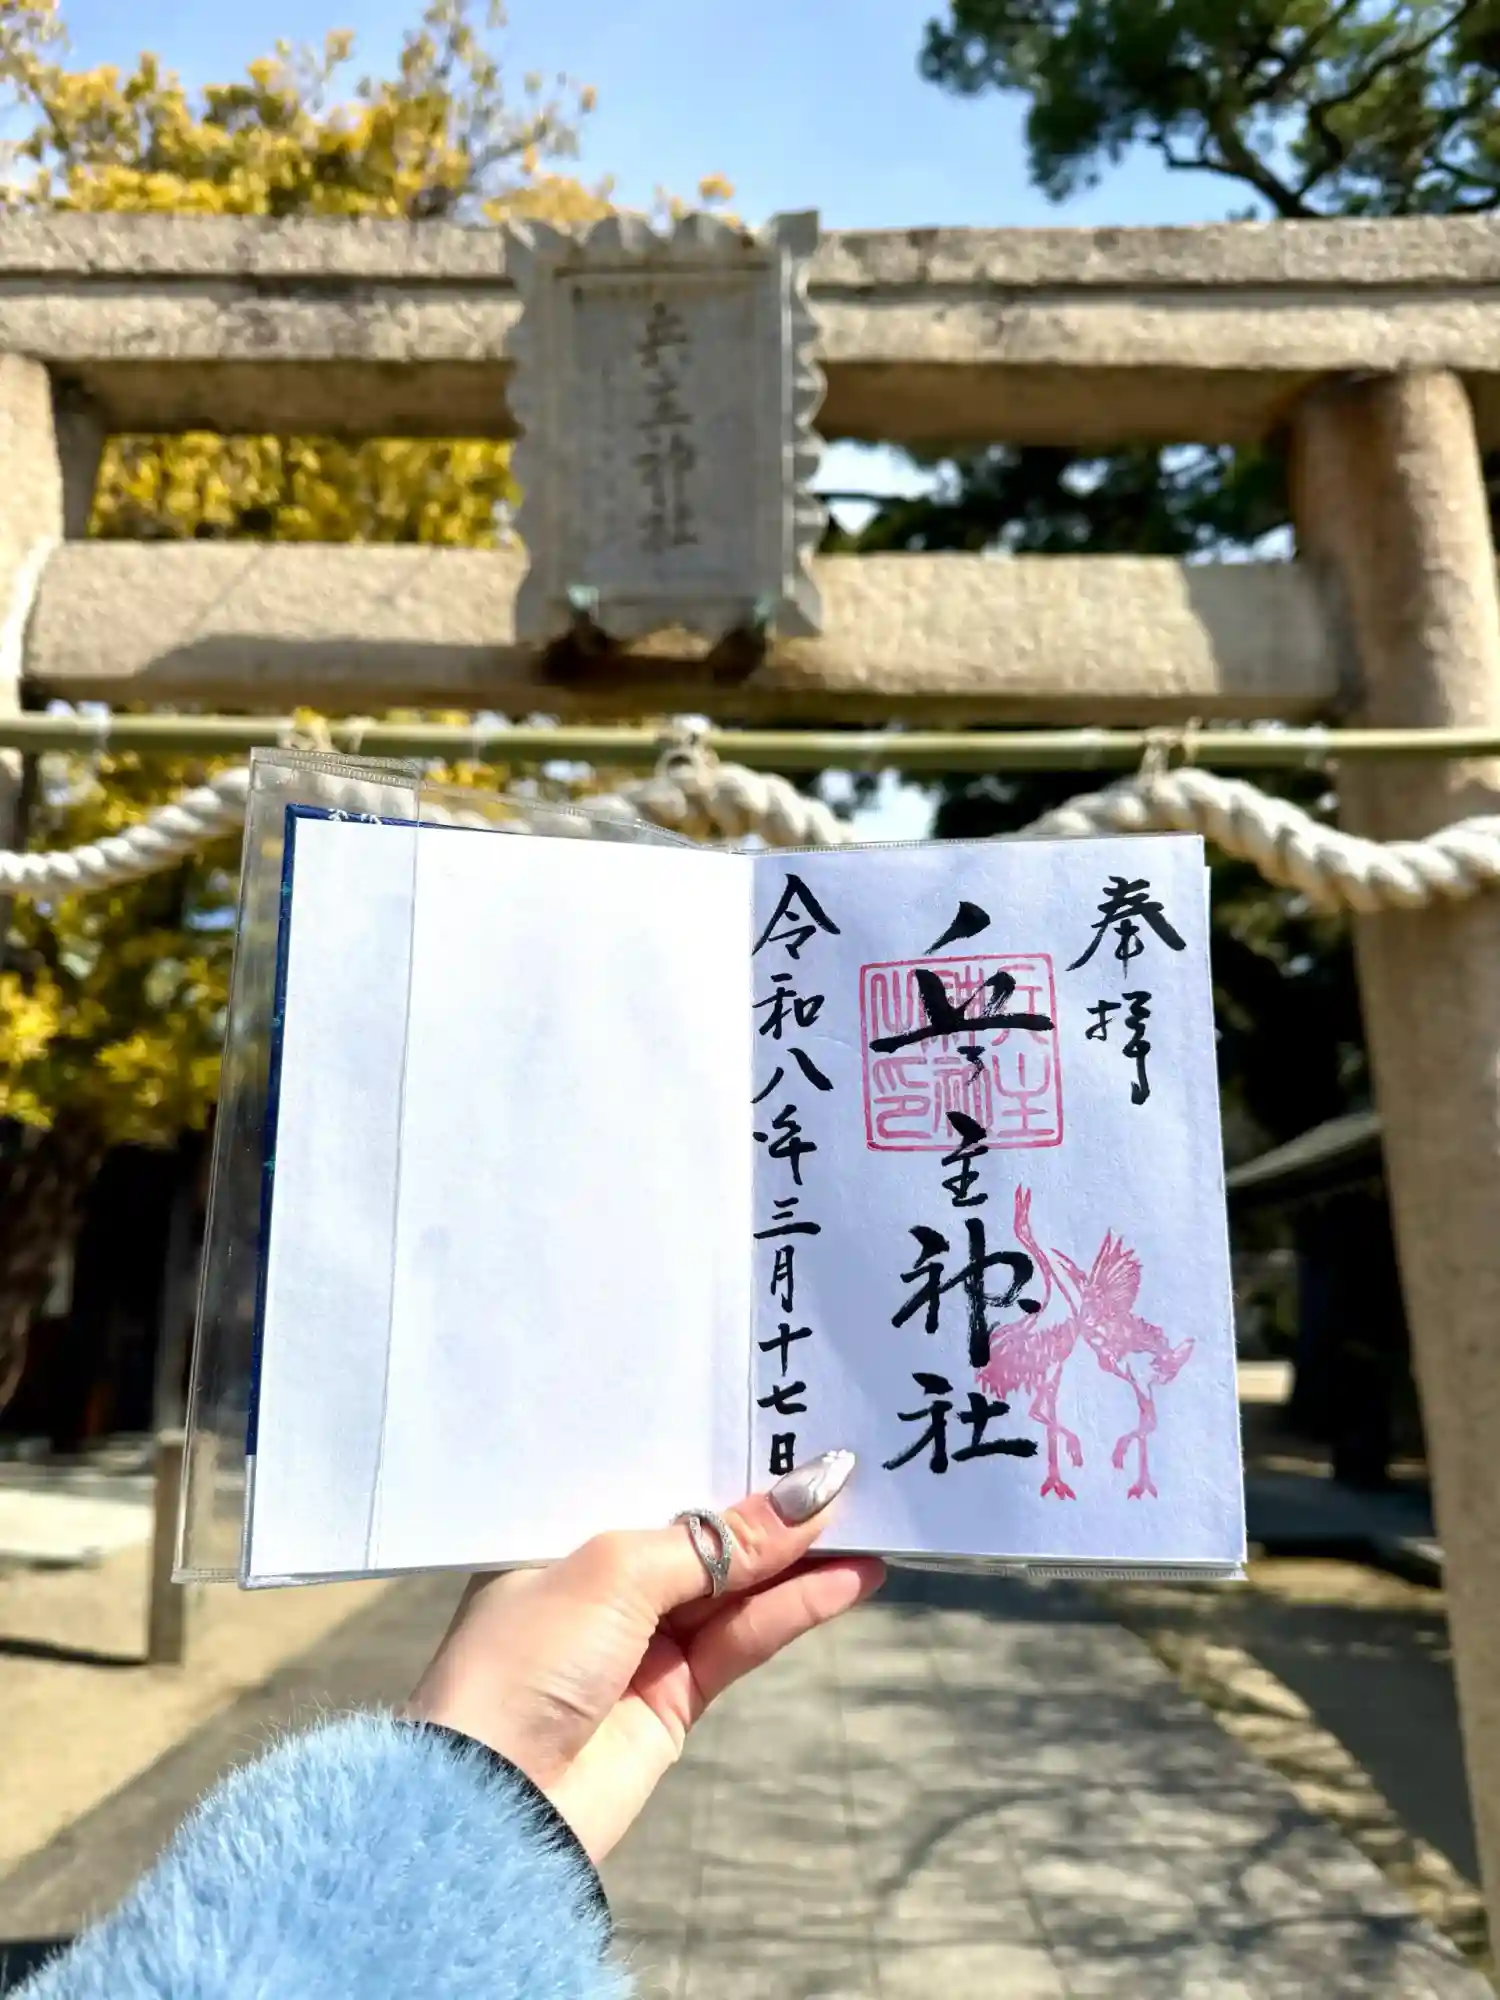 兵主神社
奉拝
兵主神社
兵主
神社
之印
令和八年三月十七日